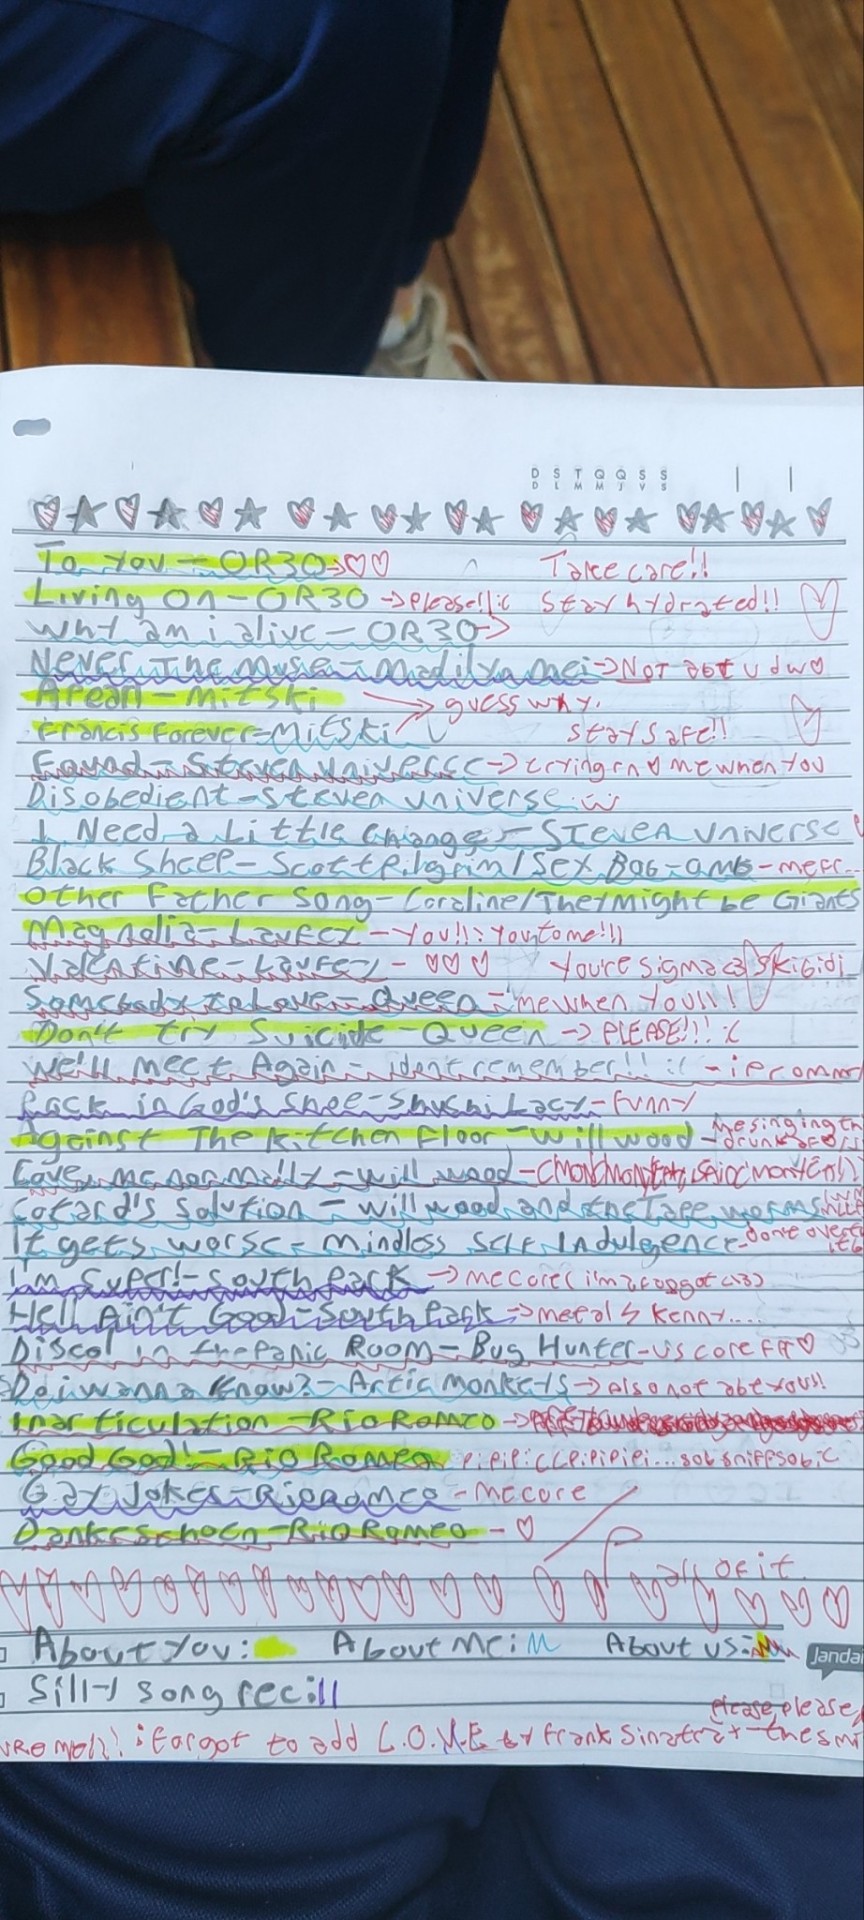 D S T Q Q S S
D L M M J V S
To You - OR3O → ♡♡ Take care!!
Living On - OR3O → please!! :c Stay hydrated!!
Why am i alive - OR3O →
Never The Muse - Madilyn Mei → NOT abt u dw ♡
A Pearl - Mitski → guess why.
Francis Forever - Mitski Stay safe!!
Found - Steven Universe → crying rn ♡ me when you
Disobedient - Steven Universe :w
I Need a Little Change - Steven Universe
Black Sheep - Scott Pilgrim / Sex Bob-omb - mefr...
Other Father Song - Coraline / They Might be Giants
Magnolia - Laufey - You!!! : You to me!!!
Valentine - Laufey - ♡♡♡ You're sigma <3 skibidi
Somebody to Love - Queen - me when You!!!
Don't try Suicide - Queen → PLEASE!!! :(
We'll Meet Again - i dont remember!! :( -
Back in God's Shoe - Sushi Lacy - funny
Against The Kitchen Floor - Will wood - me singing
drunk
Love, me normally - will wood -
Cotard's Solution - will wood and the Tape worms
It gets worse - mindless self Indulgence -
I'm Super! - South Park → mecore
Hell Ain't Good - South Park → metal ϟ Kenny.....
Disco! in the Panic Room - Bug Hunter - us core FR ♡
Do i wanna Know? - Artic monkeys → also not abt you!!
Inarticulation - Rio Romeo →
Good God! - Rio Romeo pipipiccpipipipi... sob sniff sob :c
Gay Jokes - Rio Romeo - mecore
Danke Schoen - Rio Romeo - ♡
of it
About You: About Me: About us:
Jandai
Silly song rec:
please, please,
Forgot to add L.O.V.E by Frank Sinatra +